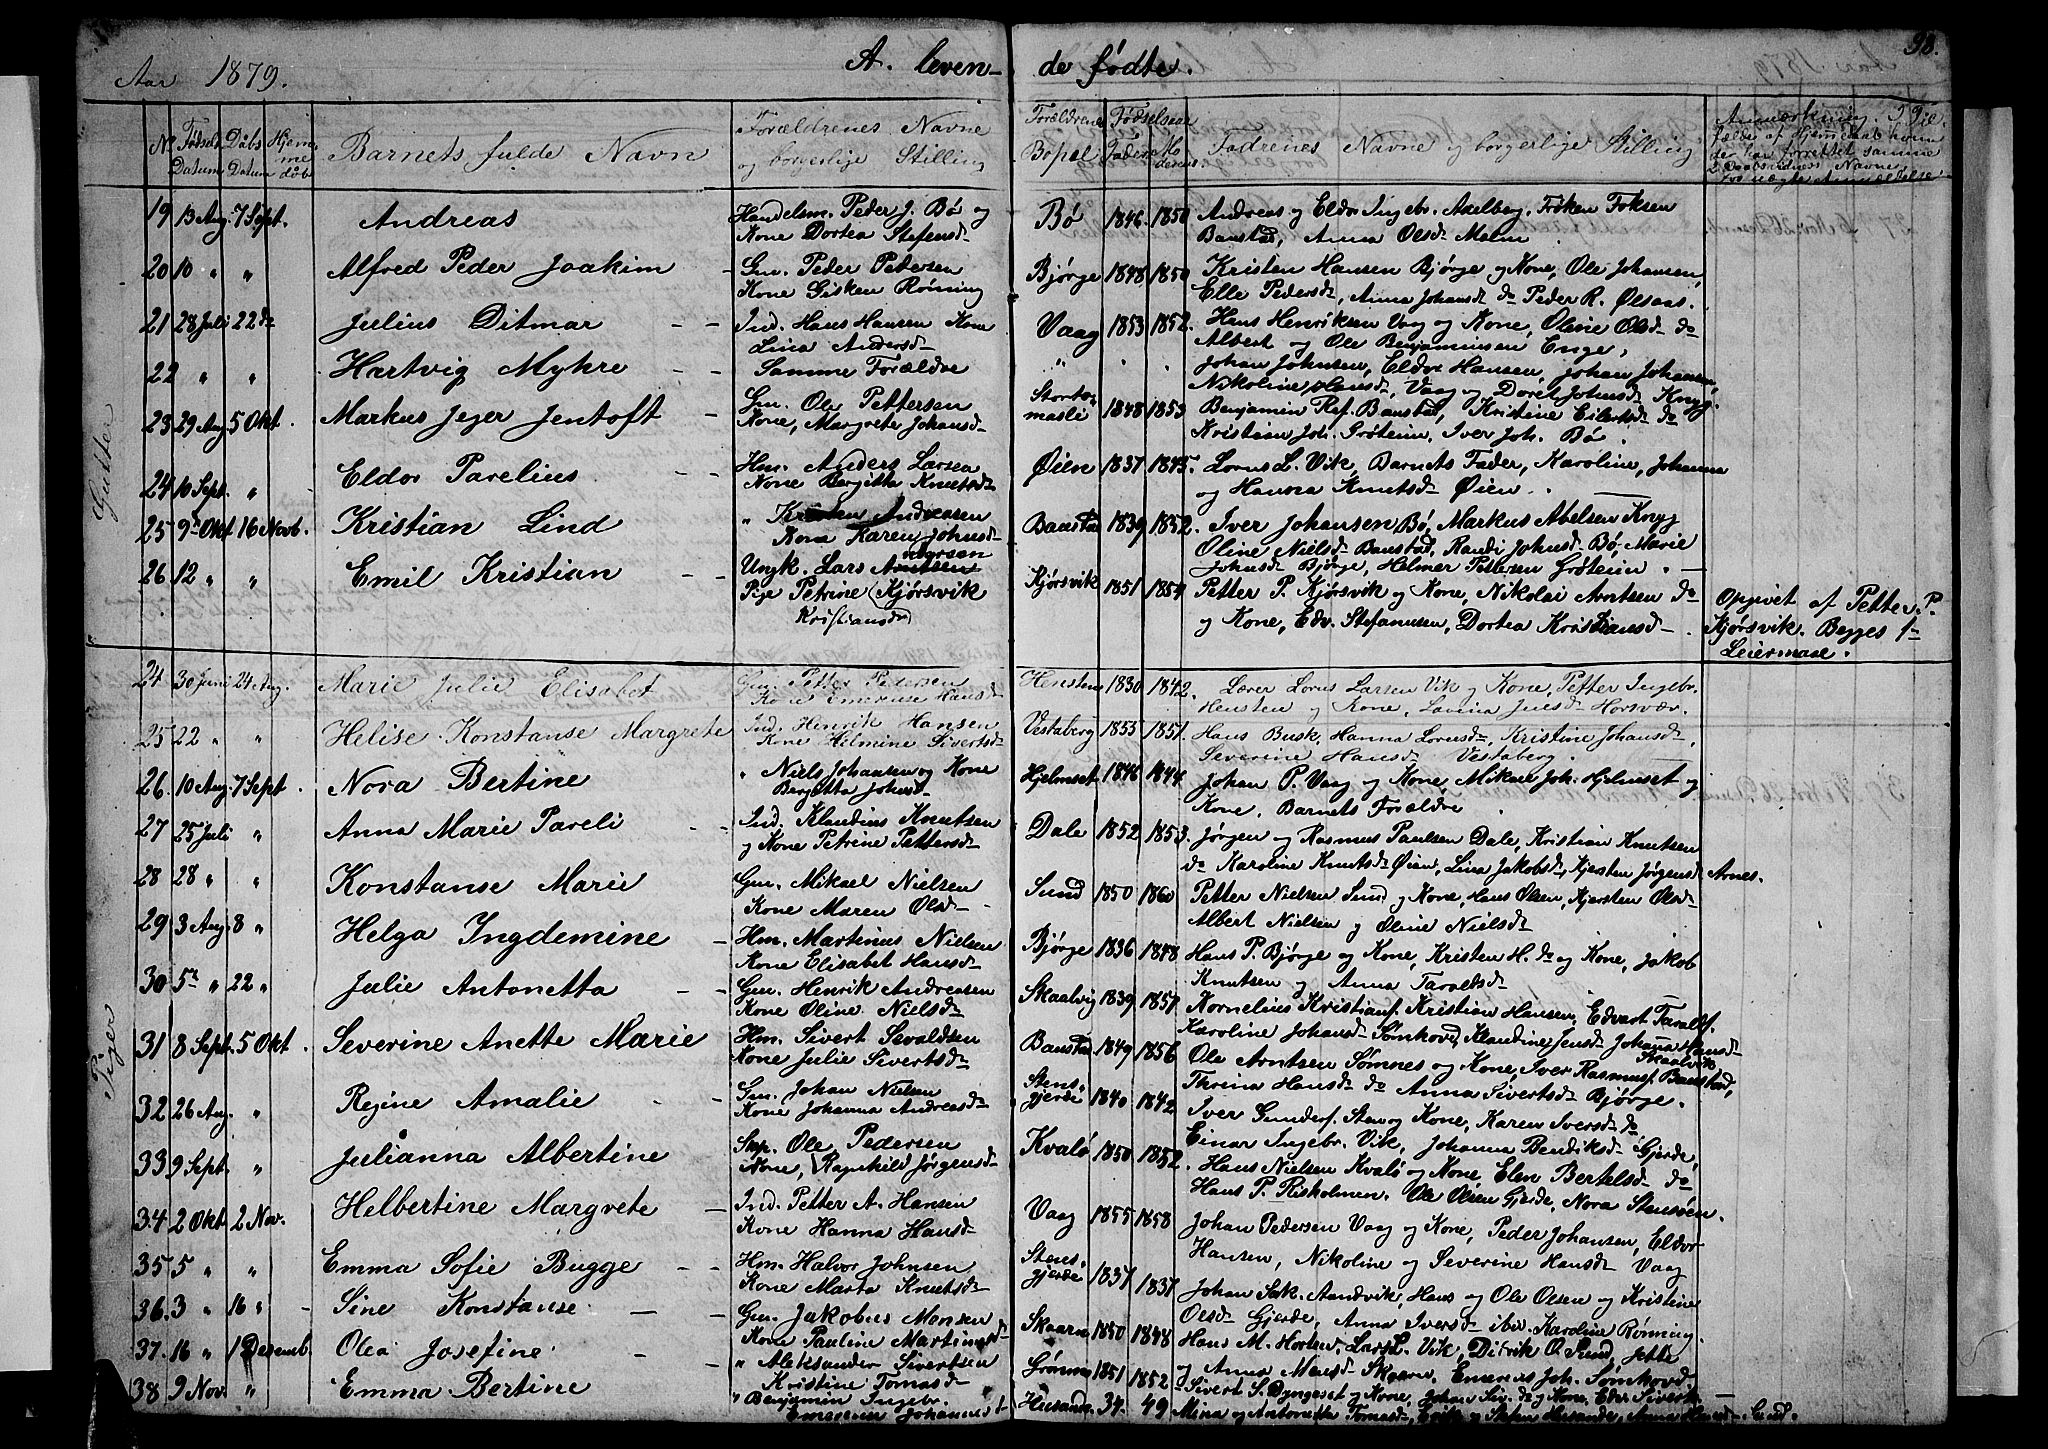 98.
Aar 1879.
A. leven-
de fødte.
No Fødsels Datum Dåbs Datum Hjemmedøb Barnets fulde Navn Forældrenes Navne og borgerlige Stilling
Forældrenes Bopæl Fødselsaar Faders Moderens Fadrenes Navne og borgerlige Stilling Anmærkning
Gutter
19 13 Aug. 7 Sept. Andreas Handelsm. Peder J. Bø og Bø 1846. 1850 Andreas og Eldor Ingebr. Axelberg. Frøken Foksen
Kone Dortea Stefensd Baustad, Anna Olsd Malm.
20 10 " " Alfred Peder Joakim Gm. Peder Petersen Bjørge 1848 1850 Kristen Hansen Bjørge og Kone, Ole Johansen,
Kone Gisken Rønning Elle Pedersd, Anna Johansd do Peder R. Ølsaas.
21 28 Juli 22 do Julius Ditmar Ind. Hans Hansen Kone Vaag 1853 1852. Hans Henriksen Vaag og Kone, Oline Olsd do
Lina Andersd Albert og Ole Benjaminsen Enge,
22 " " Hartvig Myhre Samme Forældre " Johan Johnsen, Eldor Hansen, Johan Johansen,
Nikoline Hansd, Vaag og Doret Johnsd Knyg.
23 29 Aug 5 Okt. Markus Jeger Jentoft Gm. Ole Pettersen 1848 1853 Benjamin Baustad, Kristine Eilertsd do
Kone, Margrete Johansd Kristian Joh. Iver Joh. Bø.
24 10 Sept. " Eldor Parelius Hm. Anders Larsen Øien 1837 1845. Lorns L. Vik, Barnets Fader, Karoline, Johanna
Kone Bergitta Knutsd og Hansea Knutsd Øien.
25 9 Okt 16 Novb. Kristian Lind " Andreasen Baustad 1839 1852. Iver Johansen Bø, Markus Abelsen Knyg
Kone Karen Johnsd Oline Nielsd Baustad, Randi Johnsd Bø, Marie
26 12 " " Emil Kristian Ungk. Lars Kjørsvik 1851 Johnsd Bjørge, Helmer Pettersen
Pige Petrine (Kjørsvik Petter P. Kjørsvik og Kone, Nikolai Arntsen do
Kristiansd) og Kone, Edv. Stefanusen, Dortea Kristiansd
Opgivet af Petter P.
Kjørsvik. Begges 1ste
Leiermaal.
Piger
24 30 Juni 24 Aug. Marie Julie Elisabet Gm. Petter Pedersen Hensten 1830 1842. Lærer Lorns Larsen Vik og Kone, Petter Ingebr.
Kone Hansd Hensten og Kone, Lavina Jensd Horsvær.
25 22 " " Helise Konstanse Margrete Ind. Henrik Hansen Vestaberg 1855 1851. Hans Busk, Hanna Lornsd, Kristine Johansd,
Kone Hilmine Sivertsd Severine Hansd Vestaberg.
26. 10 Aug. 7 Sept. Nora Bertine " Niels Johansen og Kone Hjelmset 1846 1844. Johan P. Vaag og Kone, Mikael Joh. Hjelmset og
Bergitta Johnsd Kone, Barnets Forældre
27 25 Juli " Anna Marie Pareli Ind. Klaudius Knutsen Dale 1852 1853. Jørgen og Rasmus Paulsen Dale, Kristian Knutsen
og Kone Petrine Pettersd do Karoline Knutsd Øien, Lina Jakobsd, Kjersten Jørgensd Arnes.
28 28 " " Konstanse Marie Gm. Mikael Nielsen Sund 1850 1860 Petter Nielsen Sund og Kone, Hans Olsen, Kjersten Olsd
Kone Maren Olsd Albert Nielsen og Oline Nielsd
29 3 Aug. 8 " Helga Ingdemine Hm. Martinus Nielsen Bjørge 1836 1848 Hans P. Bjørge og Kone, Kristen H. do og Kone, Jakob
Kone Elisabet Hansd Knutsen og Anna Taraldsd
30 5 " 22 " Julie Antonetta Gm. Henrik Andreasen Skaalvig 1839 1857. Kornelius Kristians. Kristian Hansen, Edvart Taralds.
Kone Oline Nielsd Karoline Johansd Somhovd, Klaudine Jensd Johanna Hansd
Skaalvik
31 8 Sept. 5 Okt. Severine Anette Marie Hm. Sivert Sevaldsen Baustad 1849 1856 Ole Arntsen Sømnes og Kone, Iver Rasmus. Baustad,
Kone Julie Sivertsd Thrina Hansd do Anna Sivertsd Bjørge.
32 26 Aug. " Regine Amalie Gm. Johan Nielsen Stensgjerde 1840 1842 Iver Gunders. Sten og Kone, Karen Iversd do
Kone Johanna Andreasd Einar Ingebr. Vik, Johanna Bendiksd Gjerde,
33 9 Sept. " Julianna Albertine Ole Pedersen Kvalø 1850 1852. Hans Nielsen Kvalø og Kone, Elen Bertelsd do
Kone, Ragnhild Jørgensd Hans P. Riskolmen. Ole Olsen Gjerde, Nora Stensøen.
34 2 Okt. 2 Nov. Helbertine Margrete Ind. Petter A. Hansen Vaag 1855 1858 Johan Pedersen Vaag og Kone, Peder Johansen, Eldor
Kone Hanna Hansd Hansen, Nikoline og Severine Hansd Vaag
35 5 " " Emma Sofie Bugge Hm. Halvor Johnsen Stensgjerde 1837 1837 Johan Sak. Aandvik, Hans og Ole Olsen og Kristine
Kone Marta Knutsd Olsd Gjerde, Anna Iversd ibid. Karoline Rønning.
36. 3 " 16 " Sine Konstanse Gm. Jakobus Monsen Skaarn 1850 1848 Hans M. Horten, Lars L. Vik, Didrik O. Sund, Jette
Kone Pauline Martinusd og Anna Monsd Skaarn,
37. 16 " 1 Desemb. Olea Josefine " Aleksander Sivertsen 1851 1852 Sivert S. Dyngeset og Kone,
Kristine Tomasd
38 9 Nov. " Emma Bertine " Benjamin Ingebr. Husand 34. 49
Johannesd